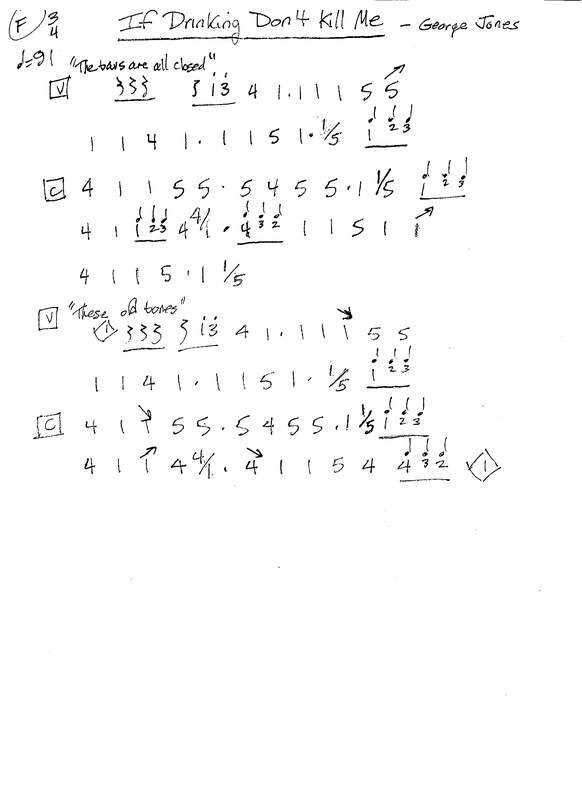 F 3/4 If Drinking Don4 Kill Me - George Jones
♩=91 "The bars are all closed"
V 𝄽𝄽𝄽 𝄽 1 3 4 1 . 1 1 1 5 5
1 1 4 1 . 1 1 5 1 . 1/5 1 2 3
C 4 1 1 5 5 . 5 4 5 5 . 1 1/5 1 2 3
4 1 1 2 3 4 4/1 . 4 3 2 1 1 5 1 1
4 1 1 5 . 1 1/5
V "These old bones"
1 𝄽𝄽𝄽 𝄽 1 3 4 1 . 1 1 1 5 5
1 1 4 1 . 1 1 5 1 . 1/5 1 2 3
C 4 1 1 5 5 . 5 4 5 5 . 1 1/5 1 2 3
4 1 1 4 4/1 . 4 1 1 5 4 4 3 2 1